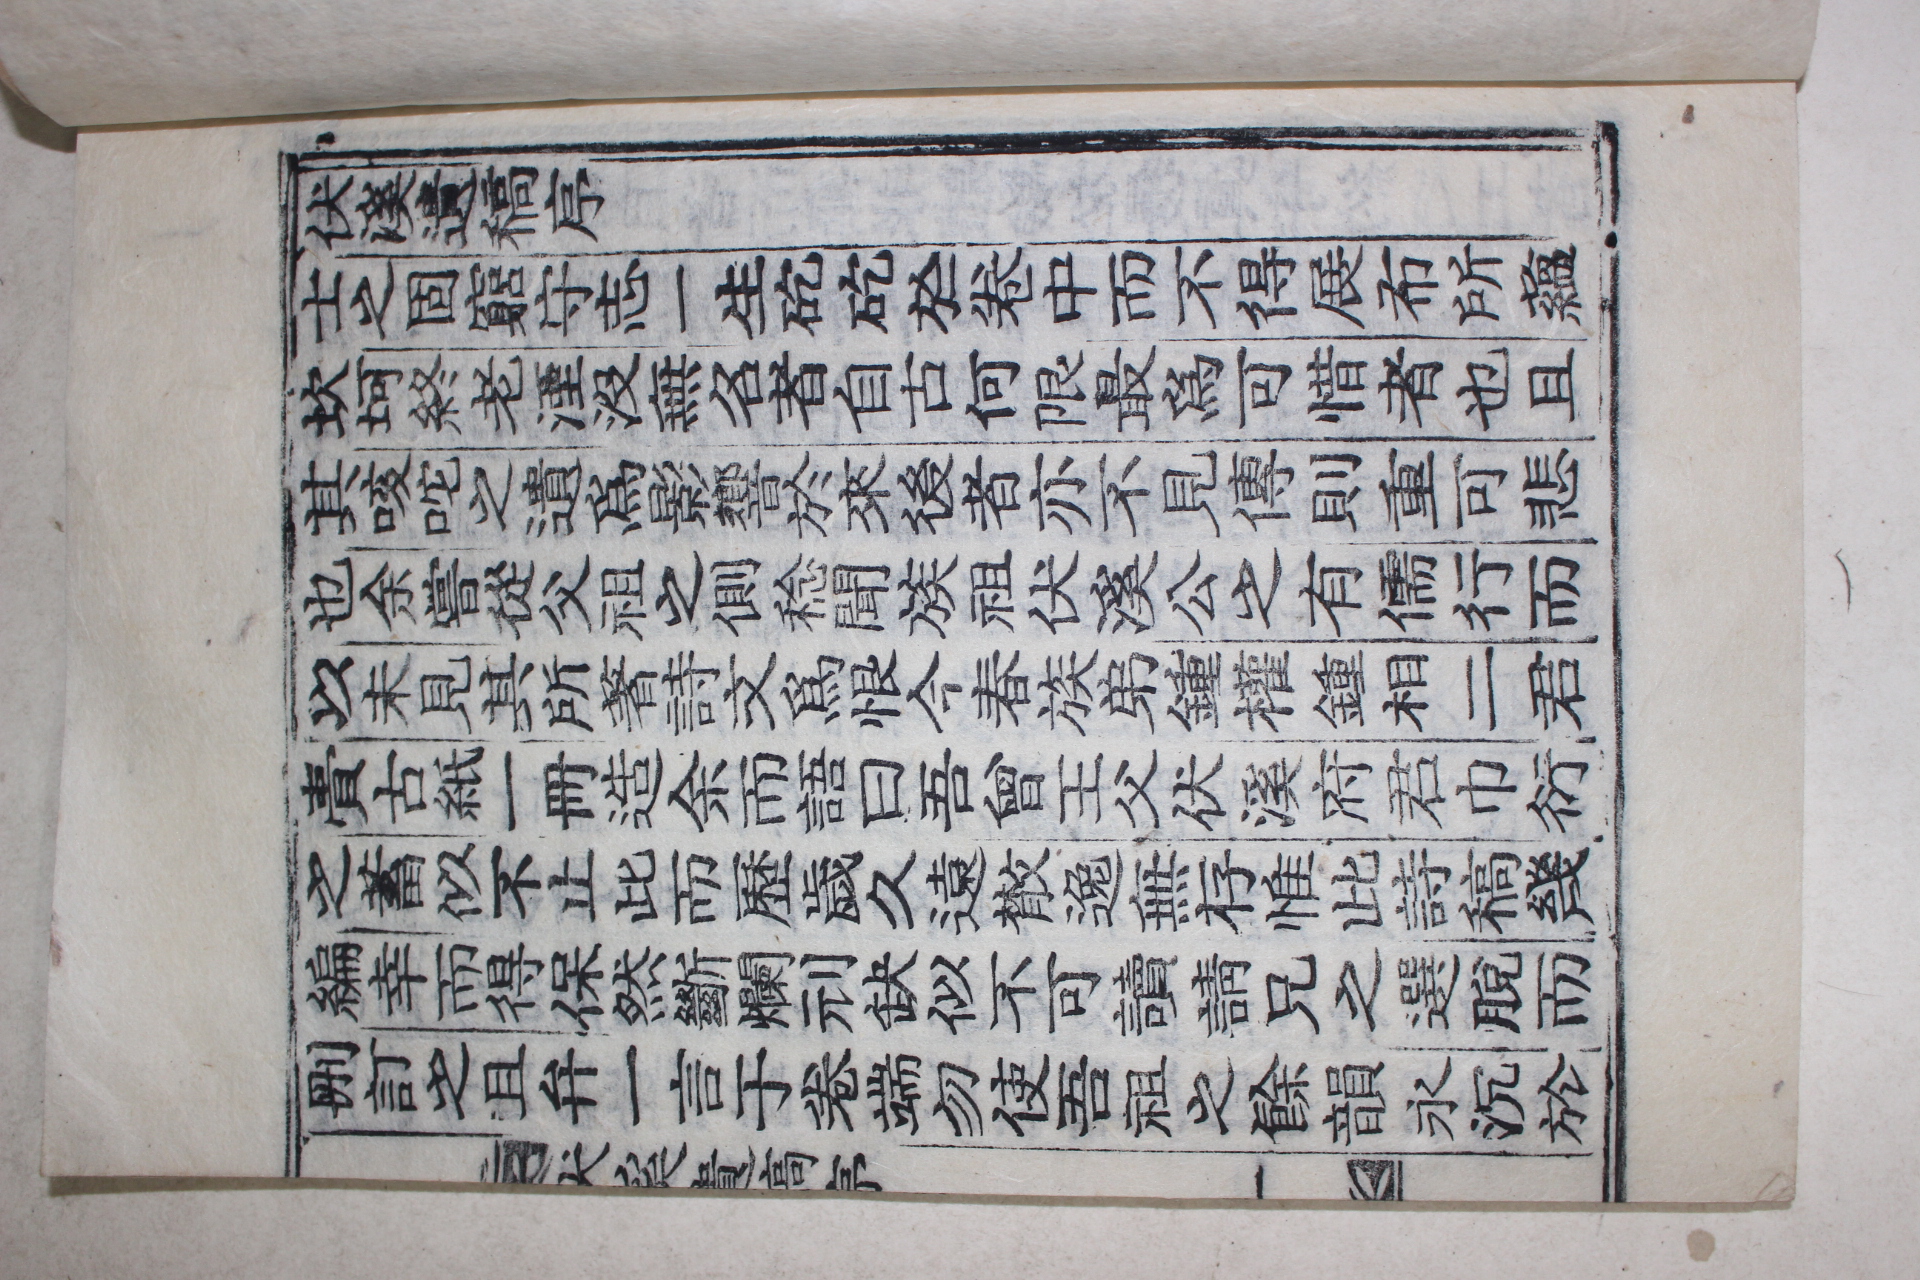 伏溪遺稿序
士之固窮守志一生矻矻於卷中而不得展布所蘊
坎坷終老湮沒無名者自古何限最爲可惜者也且
其咳唾之遺爲影響於來後者亦不見傳則重可悲
也余嘗從父祖之側稔聞族祖伏溪公之有儒行而
以未見其所著詩文爲恨今春族弟鍾權鍾相二君
賫古紙一冊造余而語曰吾曾王父伏溪府君巾衍
之蓄似不止此而歷歲久遠散逸無存惟此詩稿幾
編幸而得保然斷爛刓缺似不可讀請兄之選脫而
刪訂之且弁一言于卷端勿使吾祖之餘韻永沉於
伏溪遺稿序 一